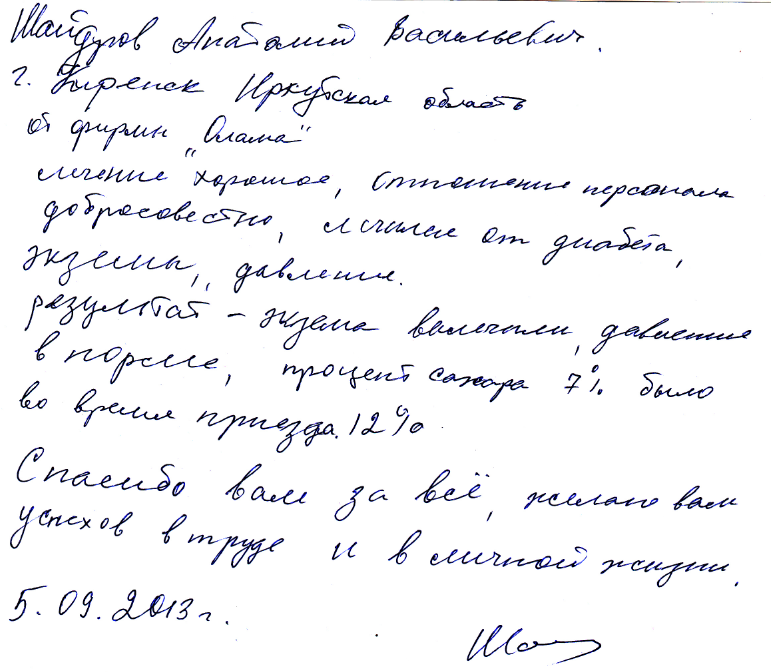 Шайдуров Анатолий Васильевич.
г. Киренск Иркутская область
от фирмы "Олама"
лечение хорошое, отношение персонала
добросовестно, лечился от диабета,
экземы, давления.
результат – экзема вылечили, давление
в норме, процент сахара 7% было
во время приезда. 12%
Спасибо вам за всё, желаю вам
успехов в труде и в личной жизни.
5.09.2013 г.